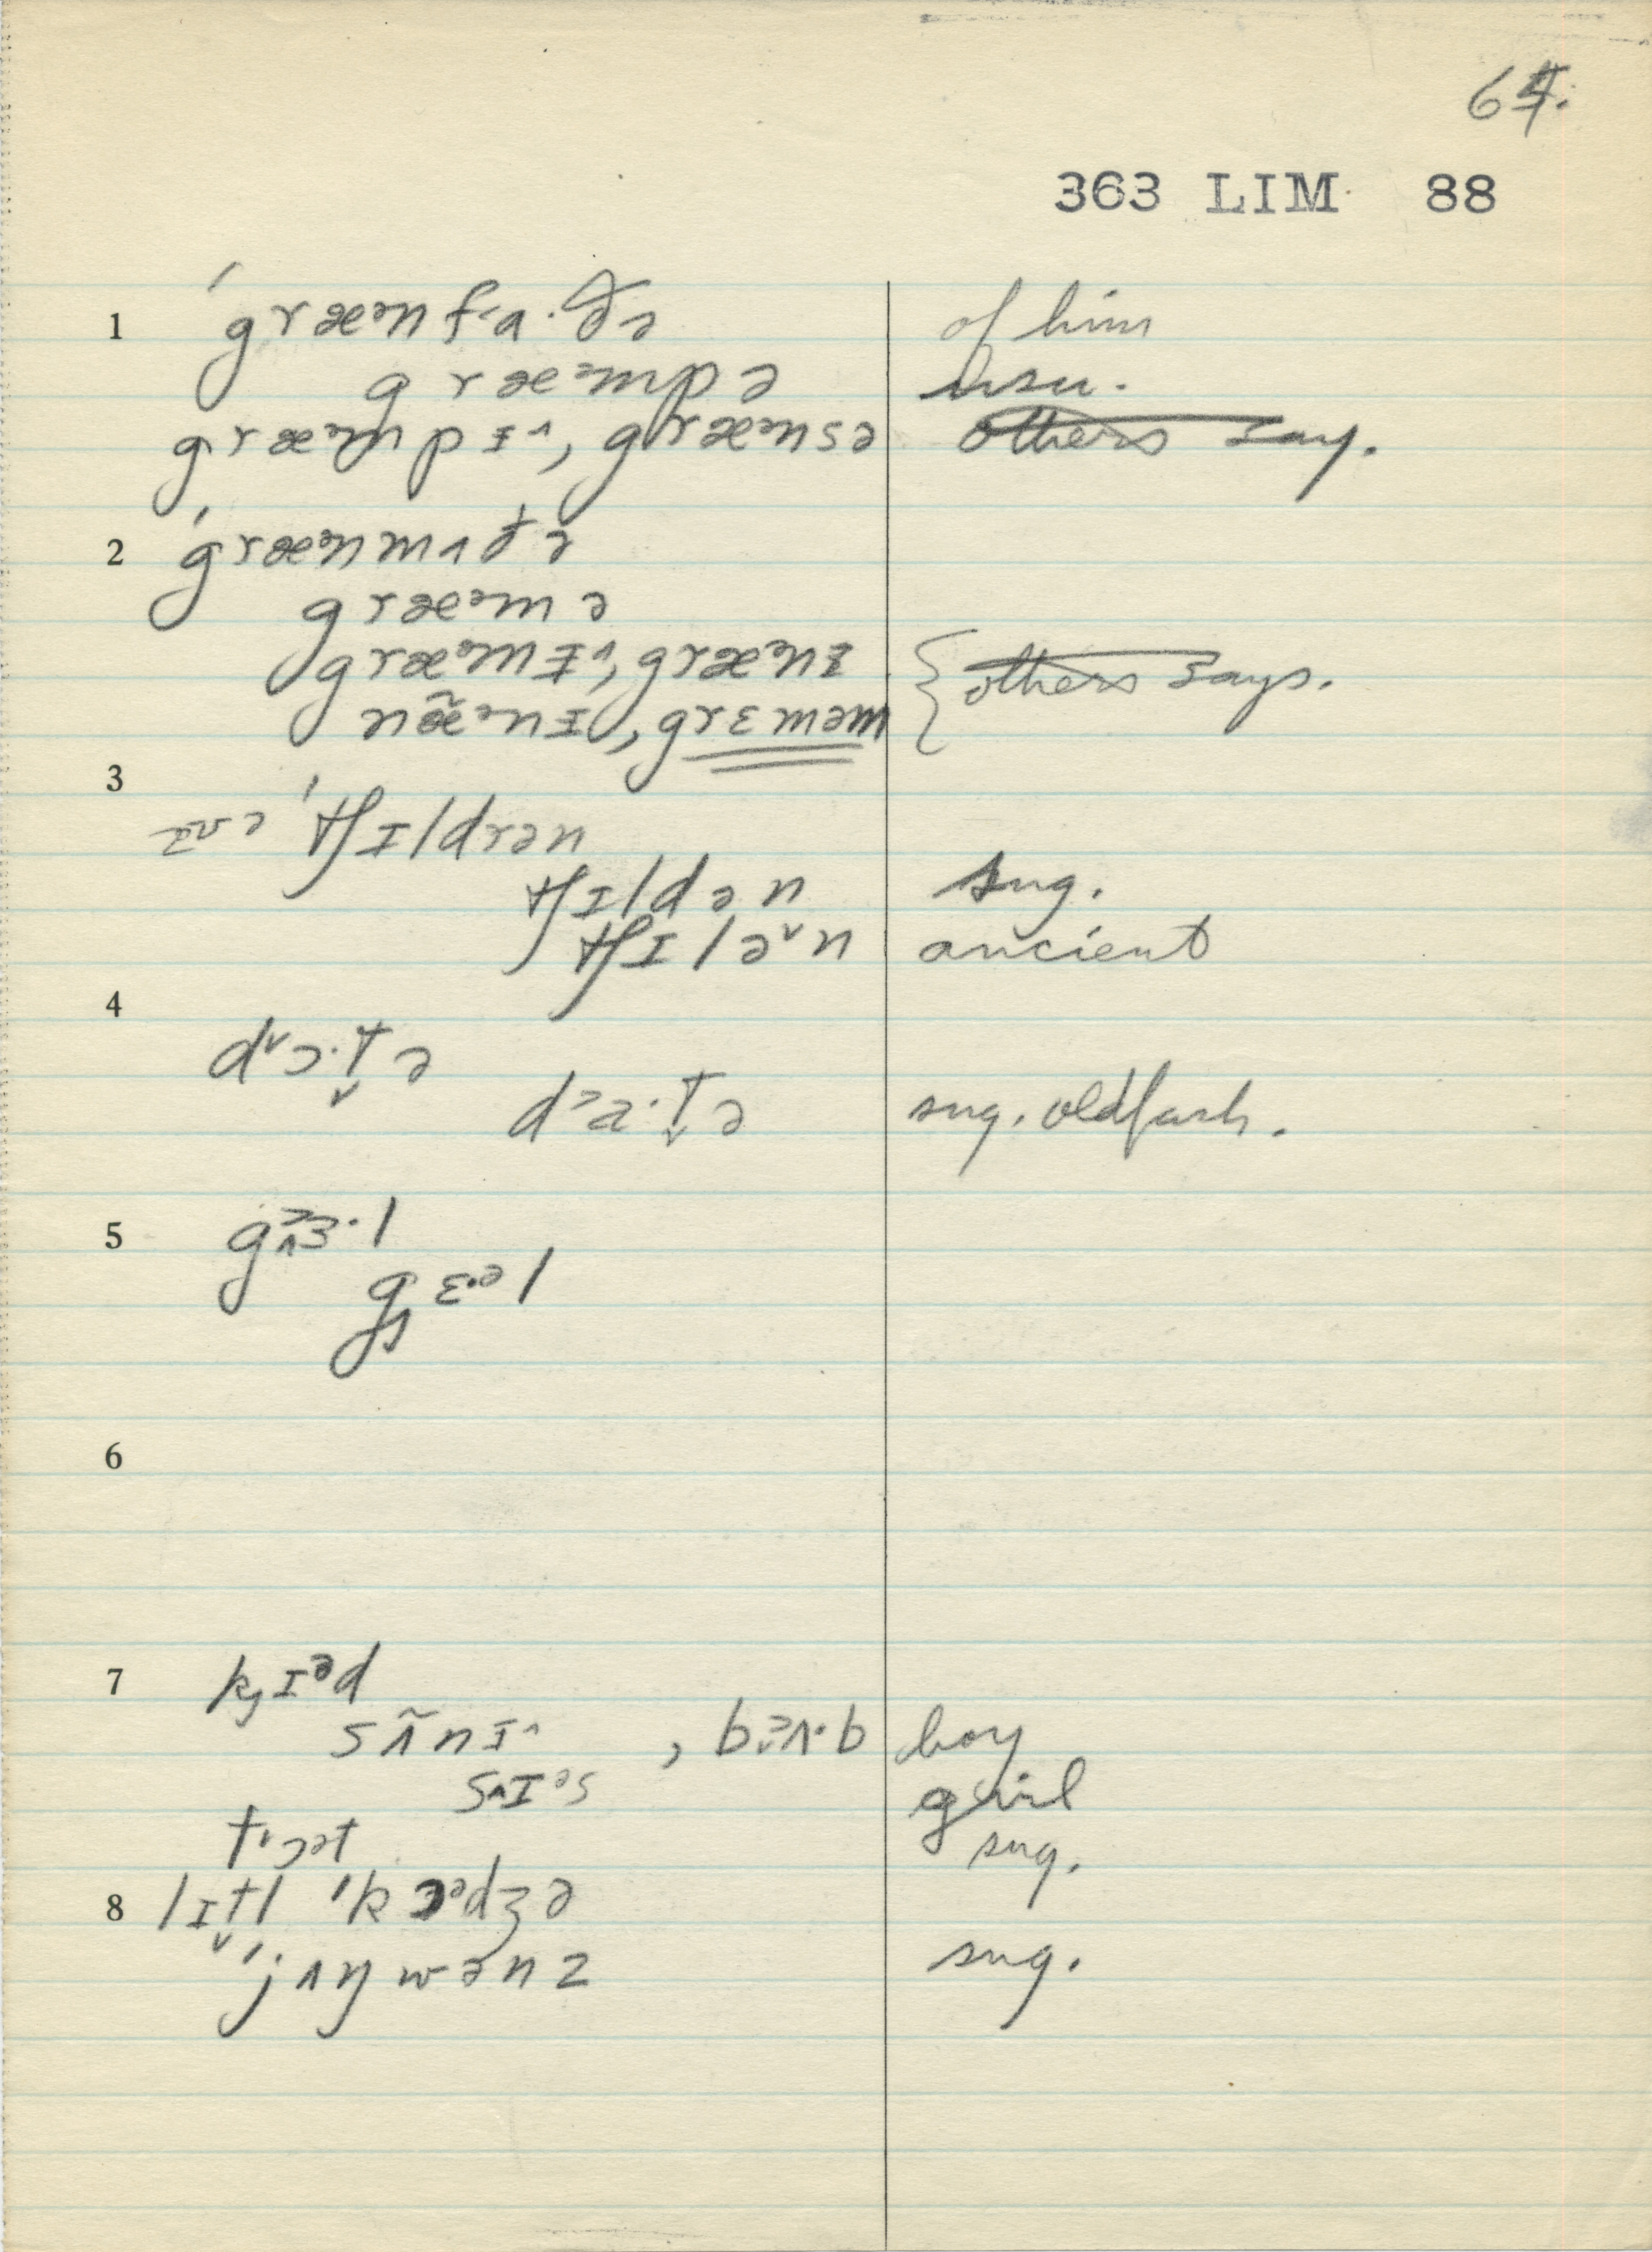 64.
363 LIM 88
1 ˈgræᵊnfɑ·ðə of him
græᵊmpə usu.
græᵊmpɪ, græᵊnsə others say.
2 ˈgræᵊnmʌðə
græᵊmə
græᵊmɪ, græᵊnɪ
næ̃ᵊnɪ, grɛməm others says.
3
ˈtʃɪldrən
tʃɪldən sug.
tʃɪlən ancient
4
dɔ·t̬ə
da·t̬ə sug. oldfash.
5 gɜ·l
gɛ·ᵊl
6
7 kɪᵊd
sʌ̃nɪ, bʌ·b boy
sɪᵊs girl
tɔət sug.
8 lɪt̬l ˈkɔᵊdʒə
ˈjʌŋwənz sug.